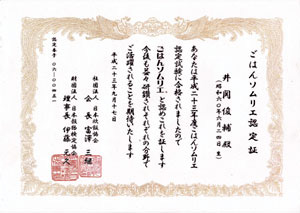 認定番号 〇六-〇〇四三
ごはんソムリエ認定証
井岡俊輔殿
(昭和六〇年六月二四日生)
あなたは平成二十三年度ごはんソムリエ
認定試験に合格されましたので
ごはんソムリエと認められる証します
今後も益々研鑽されそれぞれの分野で
ご活躍されることを期待いたします
平成二十三年九月十七日
社団法人 日本炊飯協会
会長 宝澤三組
財団法人 日本穀物検定協会
理事長 伊藤元久